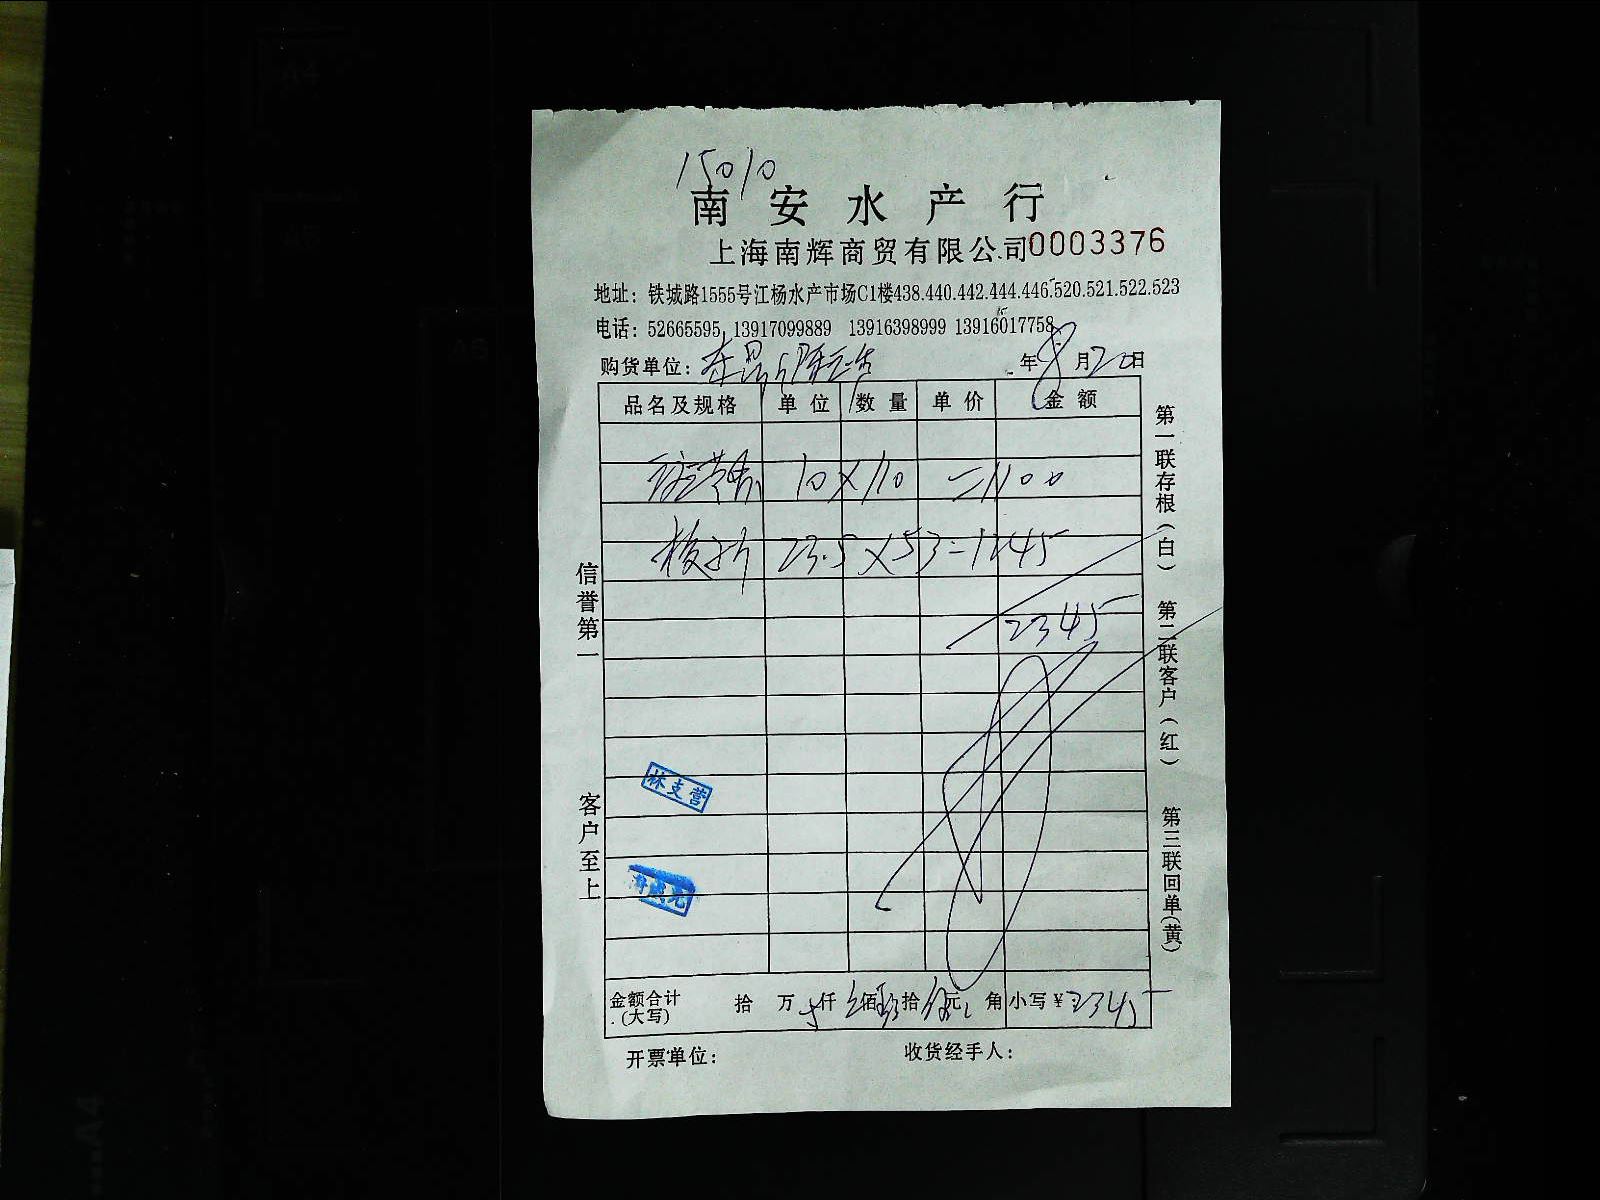 15010
南安水产行
上海南辉商贸有限公司0003376
地址：铁城路1555号江杨水产市场C1楼438.440.442.444.446.520.521.522.523
电话：52665595, 13917099889 13916398999 13916017758
购货单位： 年8月20日
品名及规格 单位 数量 单价 金额
10×110=1100
23.5×53=1245
2345
信誉第一
客户至上
第一联存根（白）
第二联客户（红）
第三联回单（黄）
林支营
金额合计（大写） 拾 万 仟 佰 拾 元 角 小写¥2345
开票单位：
收货经手人：